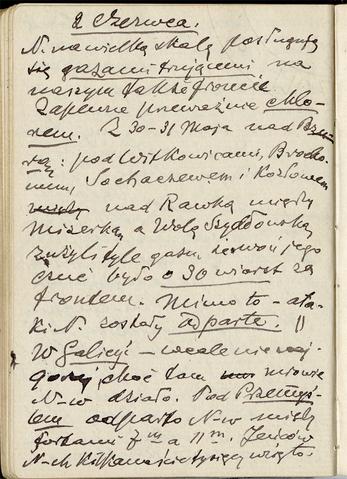 2 czerwca.
N. na wielką skalę posługują
się gazami trującymi na
naszym także froncie.
Zapewne przeważnie chlo-
rem. Z 30-31 maja nad Bzu-
rą: pod Witkowicami, Brocho-
wem, Sochaczewem i Kozłowem
nad Rawką między
Mizerką a Wolą Szydłowską
zużyli tyle gazu, że woń jego
czuć było o 30 wiorst za
frontem. Mimo to - ata-
ki N. zostały odparte. ||
W Galicyi - wcale nie naj-
gorzej, choć tam mnóstwo
N-w działa. Pod Przemyś-
lem odparto N-w między
fortami 7 m a 11 m. Jeńców
N-ch kilkanaście tysięcy wzięto.